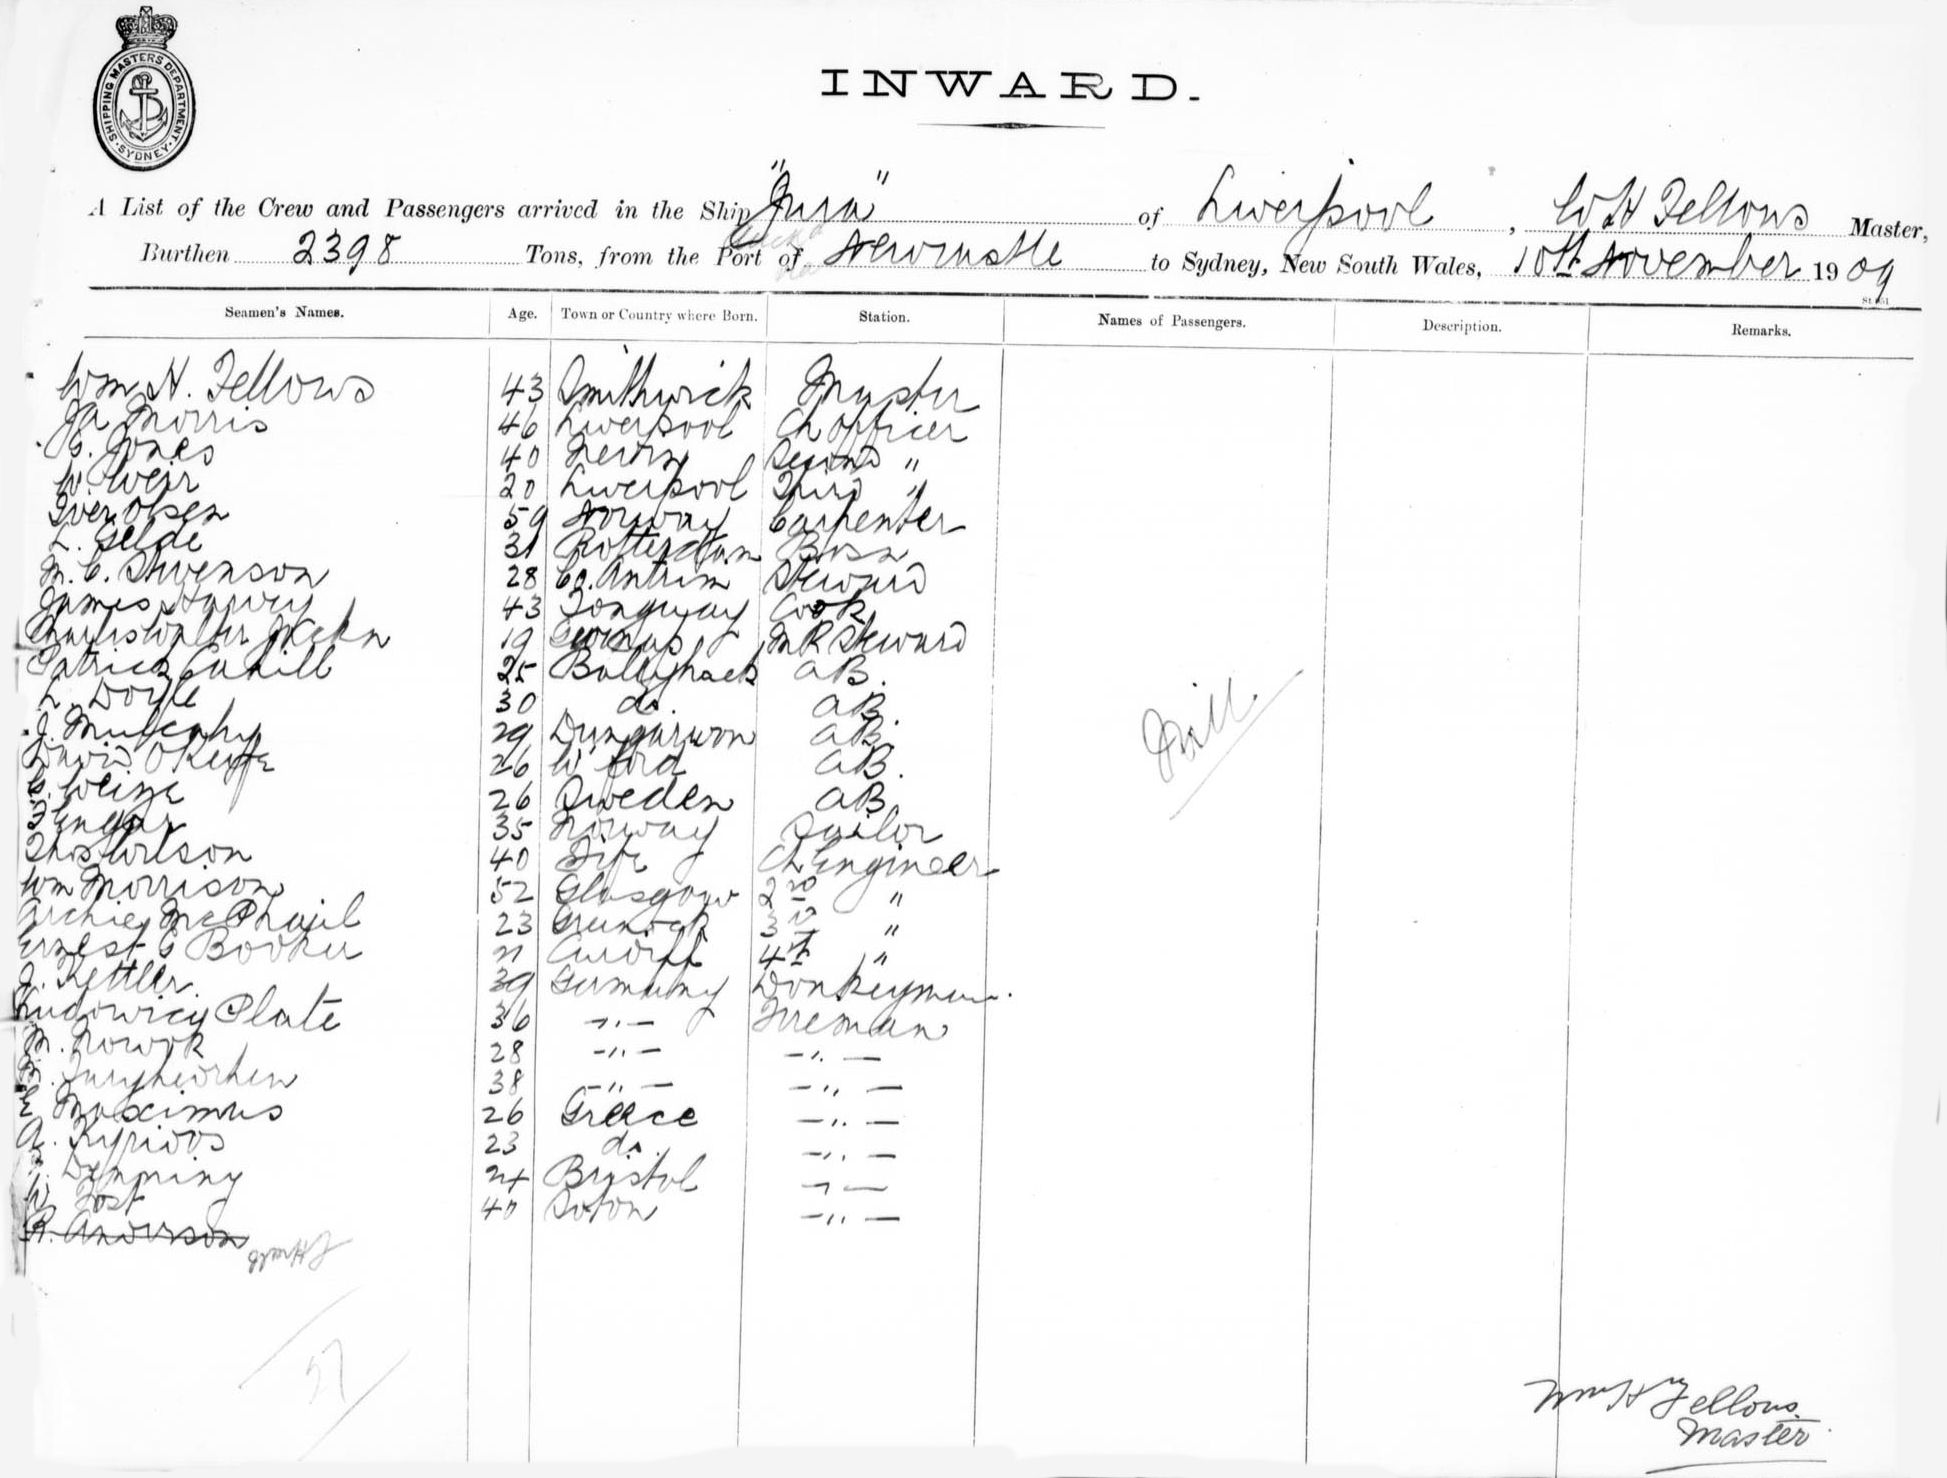 SHIPPING MASTERS DEPARTMENT
SYDNEY
INWARD.
A List of the Crew and Passengers arrived in the Ship "Jura" of Liverpool, W H Fellows Master,
Burthen 2398 Tons, from the Port of Newcastle to Sydney, New South Wales, 10th November 1909
Seamen's Names. Age. Town or Country where Born. Station. Names of Passengers. Description. Remarks.
Wm H. Fellows 43 Smithwick Master
Morris 46 Liverpool Ch officer
Jones 40 Second "
W. Weir 20 Liverpool Third "
Iver Olsen 59 Norway Carpenter
L. Gelde 31 Rotterdam Bosn
M. C. Stevenson 28 Co. Antrim Steward
James Harvey 43 Cook
Charles Walter 19 M R Steward
Patrick Cahill 25 Ballyhack AB.
L. Doyle 30 do. AB.
J. Mulcahy 29 Dungarvon AB.
David OKeeffe 26 W'ford AB.
26 Sweden AB
35 Norway Sailor
Thos Wilson 40 Fife Ch Engineer
Wm Morrison 52 Glasgow 2nd "
Archie McPhail 23 Greenock 3rd "
Ernest C Booker 21 Cardiff 4th "
J. Kettler. 39 Germany Donkeyman.
Plate 36 -"- Fireman
M. Nowok 28 -"- -"-
38 -"- -"-
Maximus 26 Greece -"-
A. Kyprios 23 do. -"-
24 Bristol -"-
W. Tost 40 Soton -"-
R. Anderson
Nill.
27
Wm H Fellows.
Master